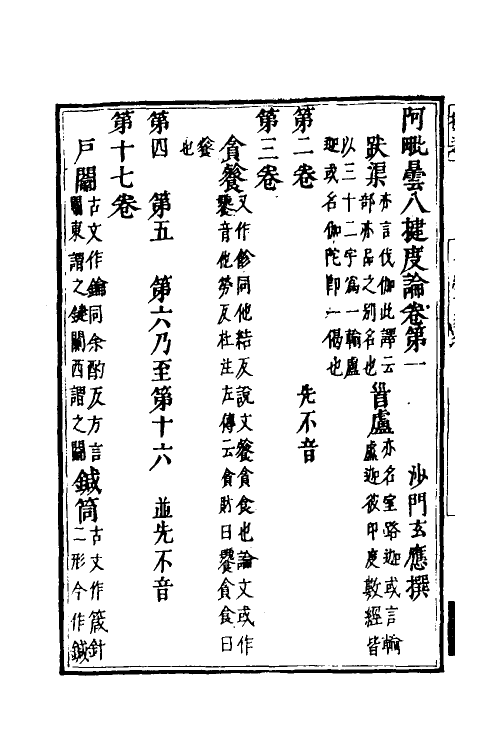 阿毗曇八揵度論卷第一　沙門玄應撰
跋渠亦言伐伽此譯云部亦品之別名也首盧亦名室路迦或言輸盧迦彼印度數經皆以三十二字爲一輸盧迦或名伽陀即一偈也
第二卷　先不音
第三卷
貪餮又作飻同他結反說文餮貪食也論文或作饕音他勞反杜注左傳云貪財曰饕貪食曰餮也
第四　第五　第六乃至第十六　並先不音
第十七卷
戶闟古文作鑰同余酌反方言關東謂之鍵關西謂之闟鍼筒古文作箴針二形今作鍼